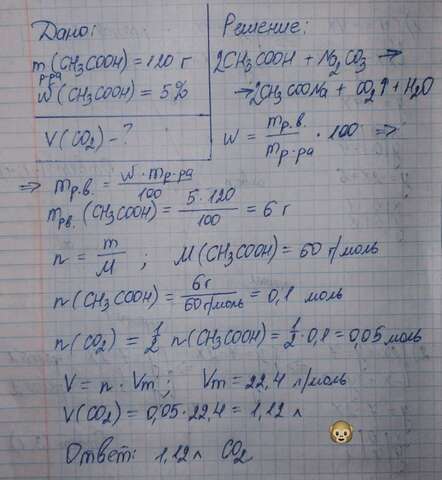 Дано:
m р-ра (CH₃COOH) = 120 г
ω (CH₃COOH) = 5%
V(CO₂) - ?
Решение:
2CH₃COOH + Na₂CO₃ →
→ 2CH₃COONa + CO₂↑ + H₂O
ω = mр.в. / mр-ра · 100 ⇒
⇒ mр.в. = ω · mр-ра / 100
mр.в. (CH₃COOH) = 5 · 120 / 100 = 6 г
n = m / M ; M(CH₃COOH) = 60 г/моль
n(CH₃COOH) = 6г / 60 г/моль = 0,1 моль
n(CO₂) = 1/2 n(CH₃COOH) = 1/2 · 0,1 = 0,05 моль
V = n · Vm ; Vm = 22,4 л/моль
V(CO₂) = 0,05 · 22,4 = 1,12 л
Ответ: 1,12л CO₂